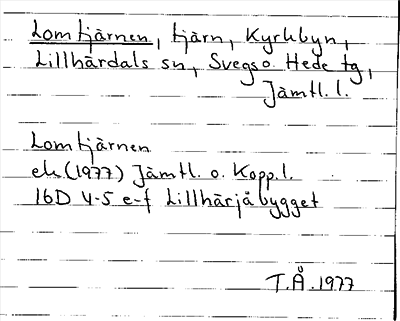 Lomtjärnen, tjärn, Kyrkbyn,
Lillhärdals sn, Svegs o. Hede tg,
Jämtl. l.
Lomtjärnen
ek (1977) Jämtl. o. Kopp. l.
16D 4-5 e-f Lillhärjåbygget
T.Å. 1977